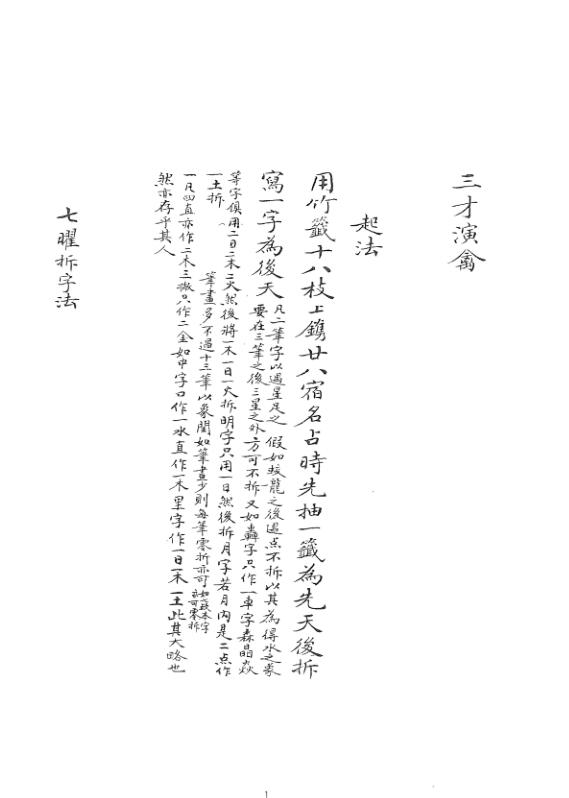 三才演禽
起法
用竹籤十八枝上鐫廿八宿名占時先抽一籤為先天後拆
寫一字為後天
凡二筆字以遇星足之 假如蛟龍之後遇点不拆以其為得水之象
要在三筆之後三星之外方可不拆又如轟字只作一車字森晶焱
等字俱用二日二木二火然後將一木一日一火拆明字只用一日然後拆月字若月內是二点作
一土拆 筆畫多不過十三筆以象閏如筆畫少則每筆零折亦可
亦可零拆
一凡四直亦作二木三撇只作二金如中字口作一水直作一木里字作一日一木一土此其大略也
然亦存乎其人
七曜拆字法
1